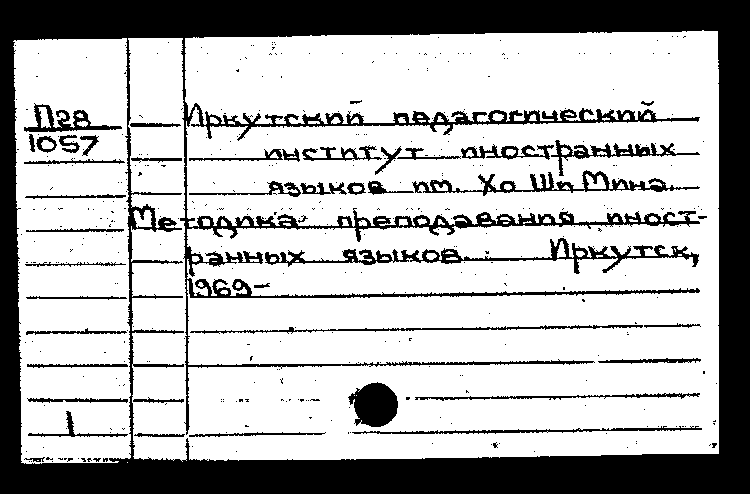 П28
1057
Иркутский педагогический
институт иностранных
языков им. Хо Ши Мина.
Методика преподавания иност-
ранных языков. Иркутск,
1969-
1